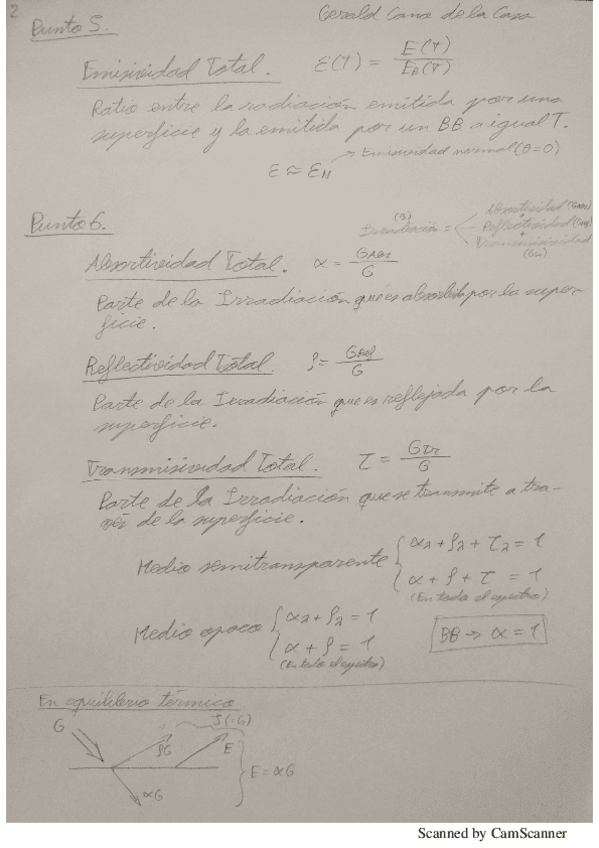 2
Gerald Cano de la Casa
Punto 5.
Emisividad Total. ε(T) = E(T) / E_B(T)
Ratio entre la radiación emitida por una
superficie y la emitida por un BB a igual T.
ε ≈ ε_N → Emisividad normal (θ=0)
Punto 6.
(G) Irradiación = < Absortividad (GAbs) + Reflectividad (GRef) + Transmisividad (GTr)
Absortividad Total. α = GAbs / G
Parte de la Irradiación que es absorbida por la super-
ficie.
Reflectividad Total. ρ = GRef / G
Parte de la Irradiación que es reflejada por la
superficie.
Transmisividad Total. τ = GTr / G
Parte de la Irradiación que se transmite a tra-
vés de la superficie.
Medio semitransparente { αλ + ρλ + τλ = 1
α + ρ + τ = 1
(En todo el espectro)
Medio opaco { αλ + ρλ = 1
α + ρ = 1
(En todo el espectro)
BB → α = 1
En equilibrio térmico
G
ρG
E
αG
E = αG
Scanned by CamScanner